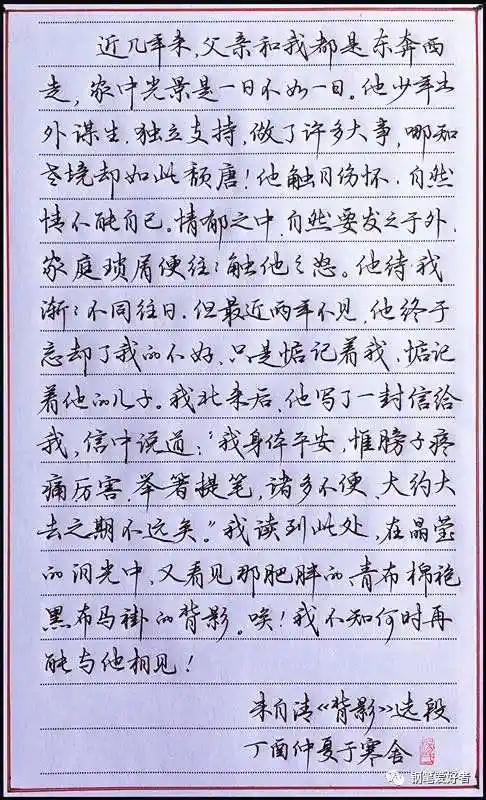 近几年来,父亲和我都是东奔西
走,家中光景是一日不如一日。他少年出
外谋生,独立支持,做了许多大事,哪知
老境却如此颓唐!他触目伤怀,自然
情不能自已。情郁于中,自然要发之于外,
家庭琐屑便往往触他之怒。他待我
渐渐不同往日,但最近两年不见,他终于
忘却了我的不好,只是惦记着我,惦记
着他的儿子。我北来后,他写了一封信给
我,信中说道:“我身体平安,惟膀子疼
痛厉害,举箸提笔,诸多不便,大约大
去之期不远矣。”我读到此处,在晶莹
的泪光中,又看见那肥胖的、青布棉袍
黑布马褂的背影。唉!我不知何时再
能与他相见!
朱自清《背影》选段
丁酉仲夏于寒舍
钢笔爱好者